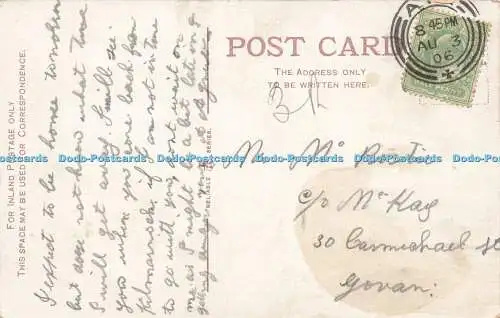 FOR INLAND POSTAGE ONLY
THIS SPACE MAY BE USED FOR CORRESPONDENCE.
I expect to be home tomorrow
but dose not know what time
I will get away. I will see
you when you come back from
Kilmarnock, if I am not in time
to go with you, dont wait on
me as I might be a bit late in
getting away
POST CARD
THE ADDRESS ONLY
TO BE WRITTEN HERE.
8 45 PM
AU 3
06
c/o Mc Kay
30 Carmichael St
Govan.
SERIES.
Dodo-Postcards Dodo-Postcards Dodo-Postcards Dodo-Postcards Dodo-Postcards